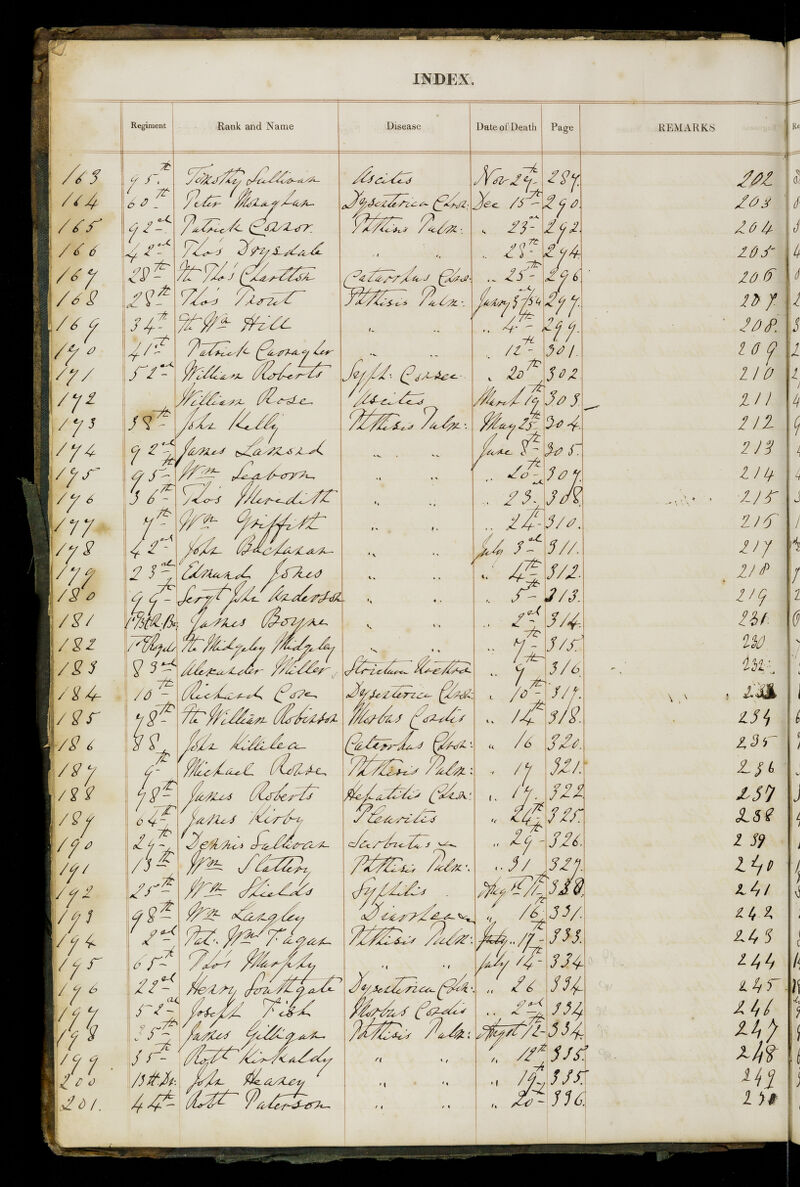 INDEX.
Regiment Rank and Name Disease Date of Death Page REMARKS
163 95th Timothy Sullivan Ascites Nov 27th 289. 202
164 60th Peter Monaghan Dysenterica Chron: Dec 15th 290. 203
165 92nd Patrick Connor. Phthisis Pulm: " 23rd 292. 204
166 42nd Thos Drysdale " " " 28th 294 205
167 28th Thos Charlton Catarrhus Chron: " 25th 296 206
168 28th Thos Trout Phthisis Pulm: 297. 207
169 34th Wm Hill " " " 4th 299. 208.
170 41st Patrick " " " 12th 301. 209
171 52nd William Roberts Syph: Consec " 20th 302 210
172 William Rose Ascites March 19 303 211
173 38th John Kelly Phthisis Pulm: May 25th 304. 212
174 92nd James Lamond " " June 8th 305. 213
175 95th Wm Seaborn " " " 20th 307. 214
176 36th Thos Meredith " " " 23rd 308 215
177 7th Wm Griffith " " " 24th 310. 216
178 42nd John Buchanan " " July 3rd 311. 217
179 23rd Edmund Jones " " " 4th 312. 218
180 99th Sergt John Anderson " " " 5th 313. 219
181 James Boyne " " " 2nd 314. 231
182 1st Royals Midgeley Midgeley " " " 7th 315. 230
183 83rd Alexander Miller Strictura Urethra " 9th 316 232
184 10th Richard Cox Dysenterica Chron: " 10th 317.
185 78th William Robinson Morbus Cordis " 14th 318. 234
186 88 John Killilea Catarrhus Chron: " 16 320. 235
187 9th Michael Rohne Phthisis Pulm: " 17 321. 236
188 78th James Roberts Hepatitis Chron: " 17. 322 237
189 64th James Kirby Pleuritis " 24th 325. 238
190 29th Dennis Sullivan Scorbutus " 29th 326. 239
191 13th Wm Slattery Phthisis Pulm: " 31 327. 240
192 25th Wm Shields Syphilis 241
193 98th Wm Langley Diarrhoea " 16th 331. 242
194 2nd Pat. Wm Fagan Phthisis Pulm: July " 17th 333. 243
195 65th Thos Murphy " " July 14th 334 244
196 22nd Henry Southgate Dysenterica Chron: " 26 334. 245
197 52nd Joseph Fish Morbus Cordis " 2nd 334 246
198 35th James Gilligan Phthisis Pulm: August 12 334. 247
199 35th Robt Kirkaldy " " " 12th 335. 248
200 13th Dr: John Heaney " " " 19th 335. 249
201. 44th Robt Paterson " " " 20th 336. 250